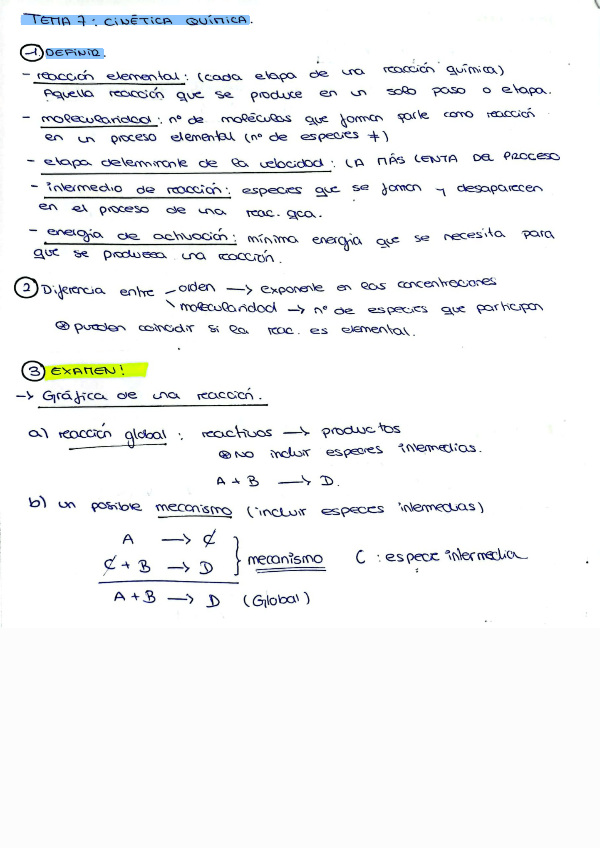 TEMA 7: CINÉTICA QUÍMICA.
1 DEFINIR.
- reacción elemental: (cada etapa de una reacción química)
Aquella reacción que se produce en un solo paso o etapa.
- molecularidad: nº de moléculas que forman parte como reacción
en un proceso elemental (nº de especies ≠)
- etapa determinante de la velocidad: LA MÁS LENTA DEL PROCESO
- intermedio de reacción: especies que se forman y desaparecen
en el proceso de una reac. qca.
- energía de activación: mínima energía que se necesita para
que se produzca una reacción.
2 Diferencia entre - orden → exponente en las concentraciones
\ molecularidad → nº de especies que participan
⊛ pueden coincidir si la reac. es elemental.
3 EXAMEN!
→ Gráfica de una reacción.
a) reacción global: reactivos → productos
⊛ NO incluir especies intermedias.
A + B → D.
b) un posible mecanismo (incluir especies intermedias)
A → C
C + B → D } mecanismo C : especie intermedia
A + B → D (Global)